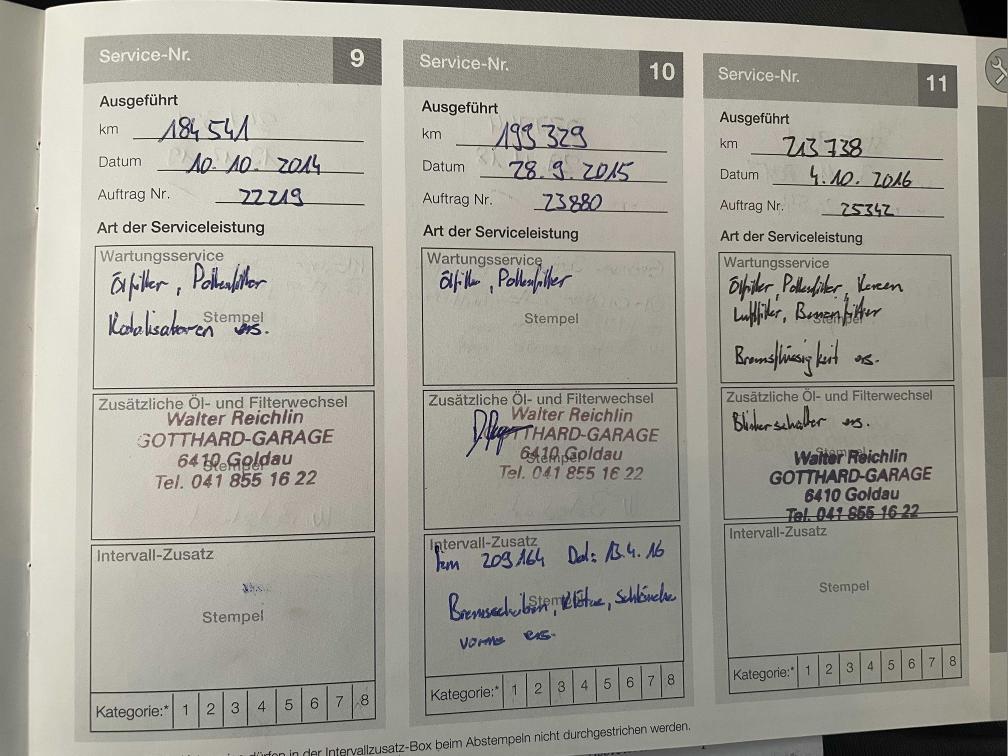 Service-Nr. 9
Ausgeführt
km 184 541
Datum 10. 10. 2014
Auftrag Nr. 22219
Art der Serviceleistung
Wartungsservice
Ölfilter, Pollenfilter
Stempel
Katalisatoren ers.
Zusätzliche Öl- und Filterwechsel
Walter Reichlin
GOTTHARD-GARAGE
6410 Goldau
Stempel
Tel. 041 855 16 22
Intervall-Zusatz
Stempel
Kategorie:* 1 2 3 4 5 6 7 8
Service-Nr. 10
Ausgeführt
km 199 329
Datum 28. 9. 2015
Auftrag Nr. 23880
Art der Serviceleistung
Wartungsservice
Ölfilter, Pollenfilter
Stempel
Zusätzliche Öl- und Filterwechsel
Walter Reichlin
GOTTHARD-GARAGE
6410 Goldau
Stempel
Tel. 041 855 16 22
Intervall-Zusatz
km 209 164 Dat: 13.4.16
Stempel
Bremsscheiben, Klötze, Schläuche
vorne ers.
Kategorie:* 1 2 3 4 5 6 7 8
Service-Nr. 11
Ausgeführt
km 213 738
Datum 4. 10. 2016
Auftrag Nr. 25342
Art der Serviceleistung
Wartungsservice
Ölfilter, Pollenfilter, Kerzen
Luftfilter, Benzinfilter
Stempel
Bremsflüssigkeit ers.
Zusätzliche Öl- und Filterwechsel
Blinkerschalter ers.
Stempel
Walter Reichlin
GOTTHARD-GARAGE
6410 Goldau
Tel. 041 855 16 22
Intervall-Zusatz
Stempel
Kategorie:* 1 2 3 4 5 6 7 8
dürfen in der Intervallzusatz-Box beim Abstempeln nicht durchgestrichen werden.